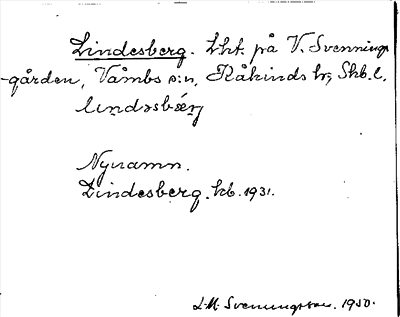 Lindesberg. Lht. på V. Svennings
-gården, Våmbs s:n, Kåkinds hd, Skb. l.
lìndəsbǽrj
Nynamn.
Lindesberg. kb. 1931.
L. M. Svenungsson. 1950.